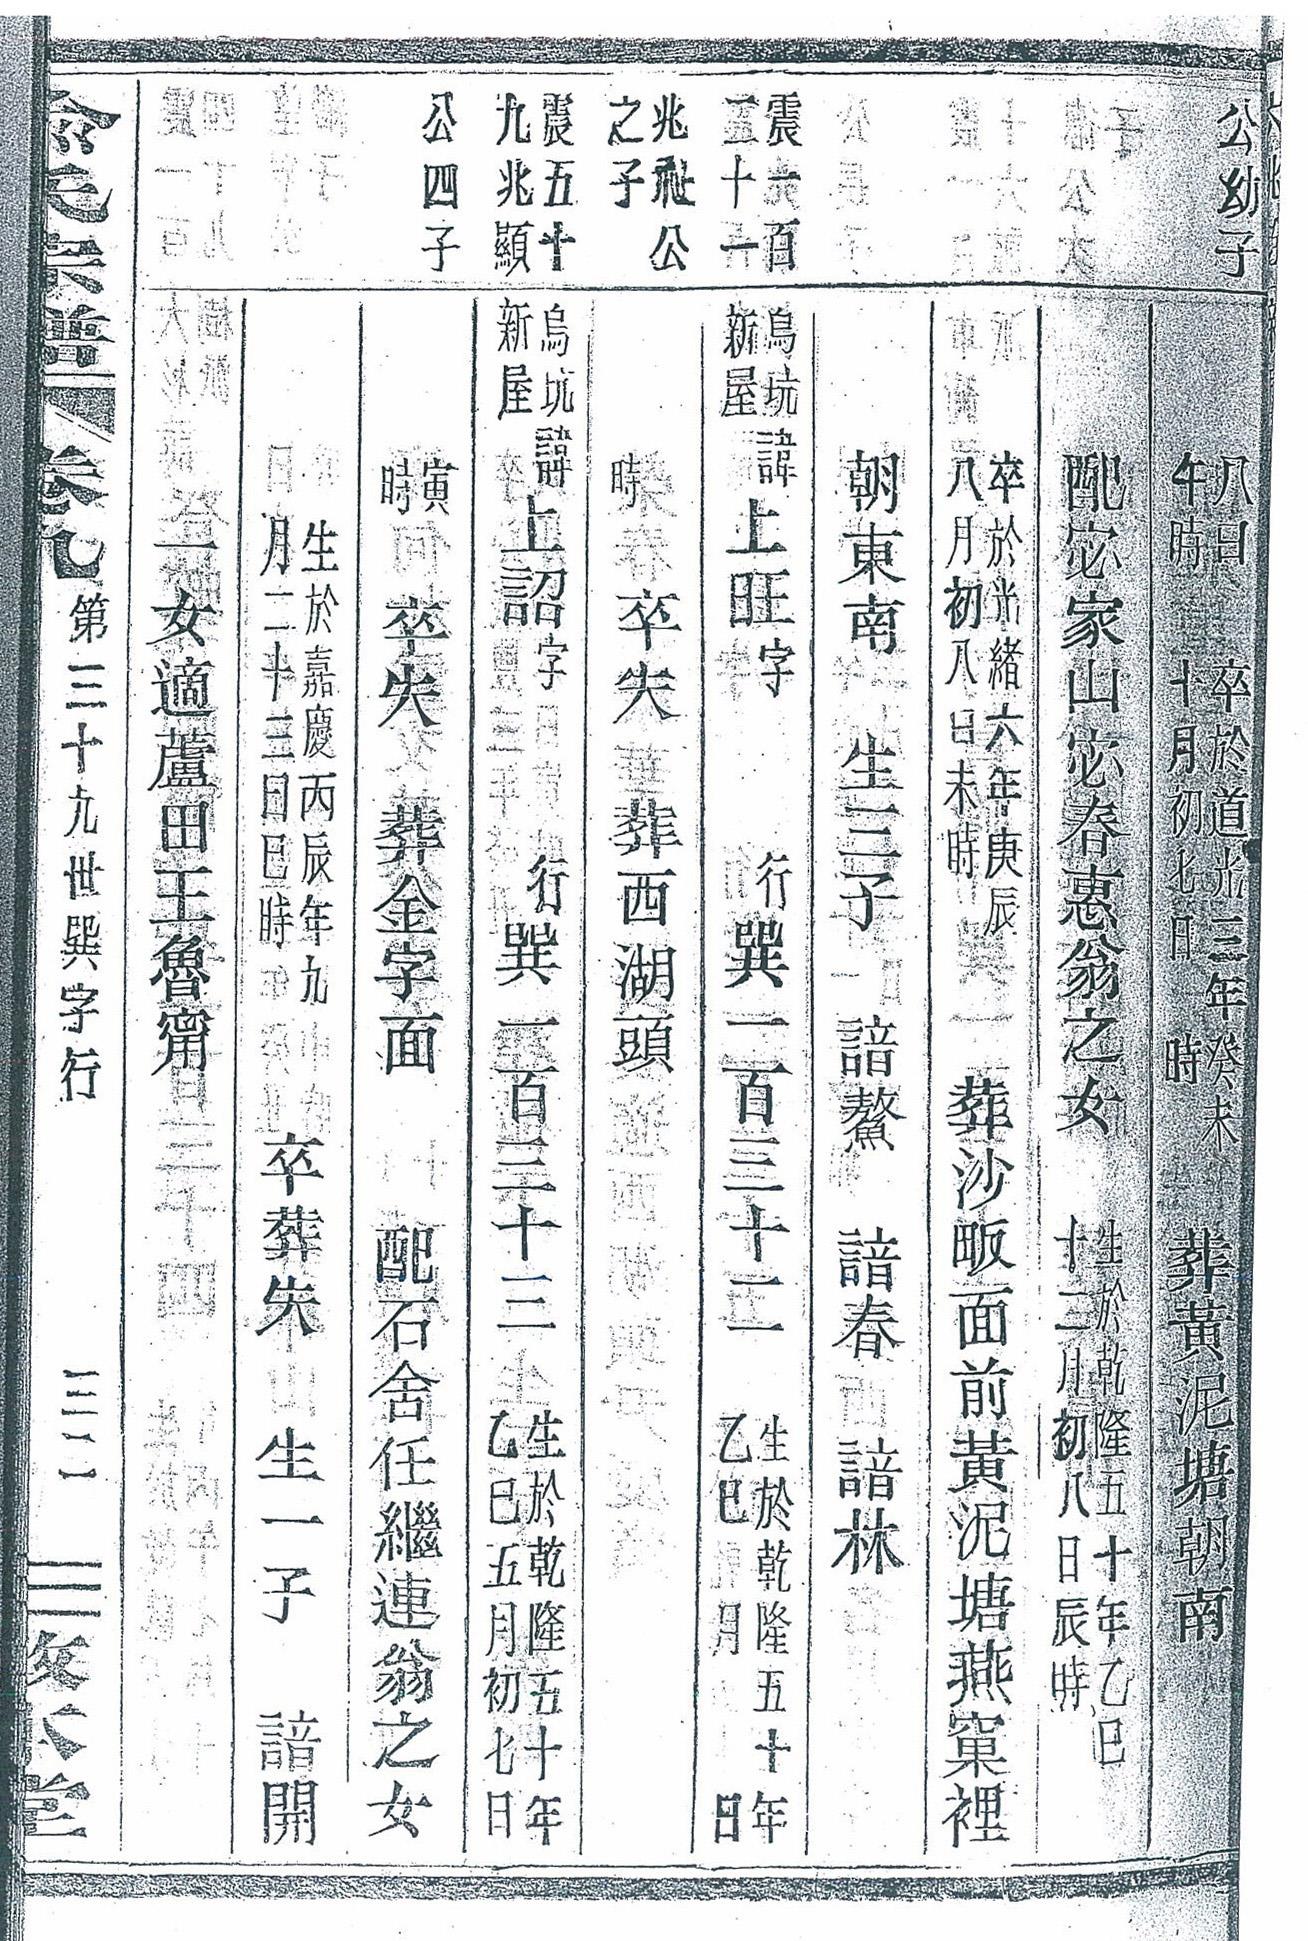 公幼子
八日
午時
卒於道光三年癸未
十月初七日　時
葬黃泥塘朝南
配宓家山宓春惠翁之女
生於乾隆五十年乙巳
十二月初八日辰時
卒於光緒六年庚辰
八月初八日未時
葬沙畈面前黃泥塘燕窠裡
朝東南　生三子　諳鰲　諳春　諳林
震一百
五十一
烏坑
新屋
諱上旺字　行巽一百三十二
生於乾隆五十年
乙巳　月　日
兆𥙿公
之子
時　卒失　葬西湖頭
震五十
九兆顯
烏坑
新屋
諱上詔字　行巽一百三十三
生於乾隆五十年
乙巳五月初七日
公四子
寅
時
卒失　葬金字面　配石舍任繼連翁之女
生於嘉慶丙辰年九
月二十三日巳時
卒葬失　生一子　諳開
一女適蘆田王魯甯
俞氏宗譜
卷九
第三十九世巽字行
敘本堂